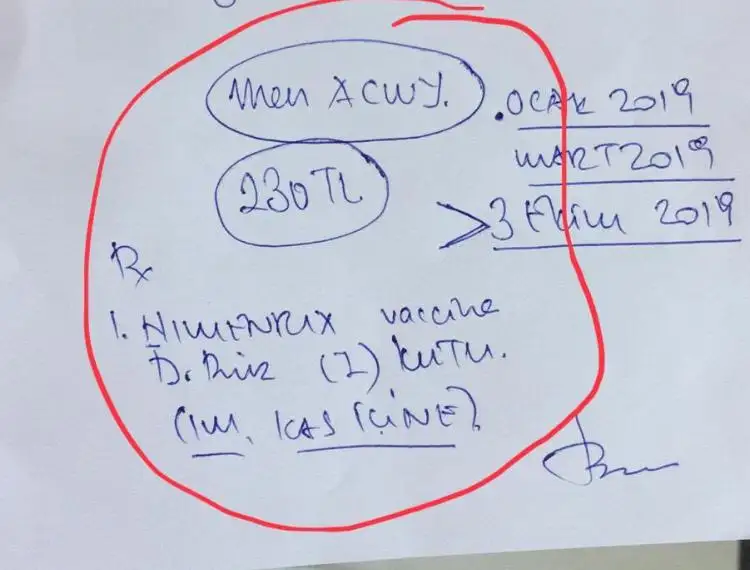 Men ACWY.
.OCAK 2019
MART 2019
230 TL
>3 Ekim 2019
Rx
1. NIMENRIX vaccine
D. (1) KUTU.
(IM. KAS İÇİNE).